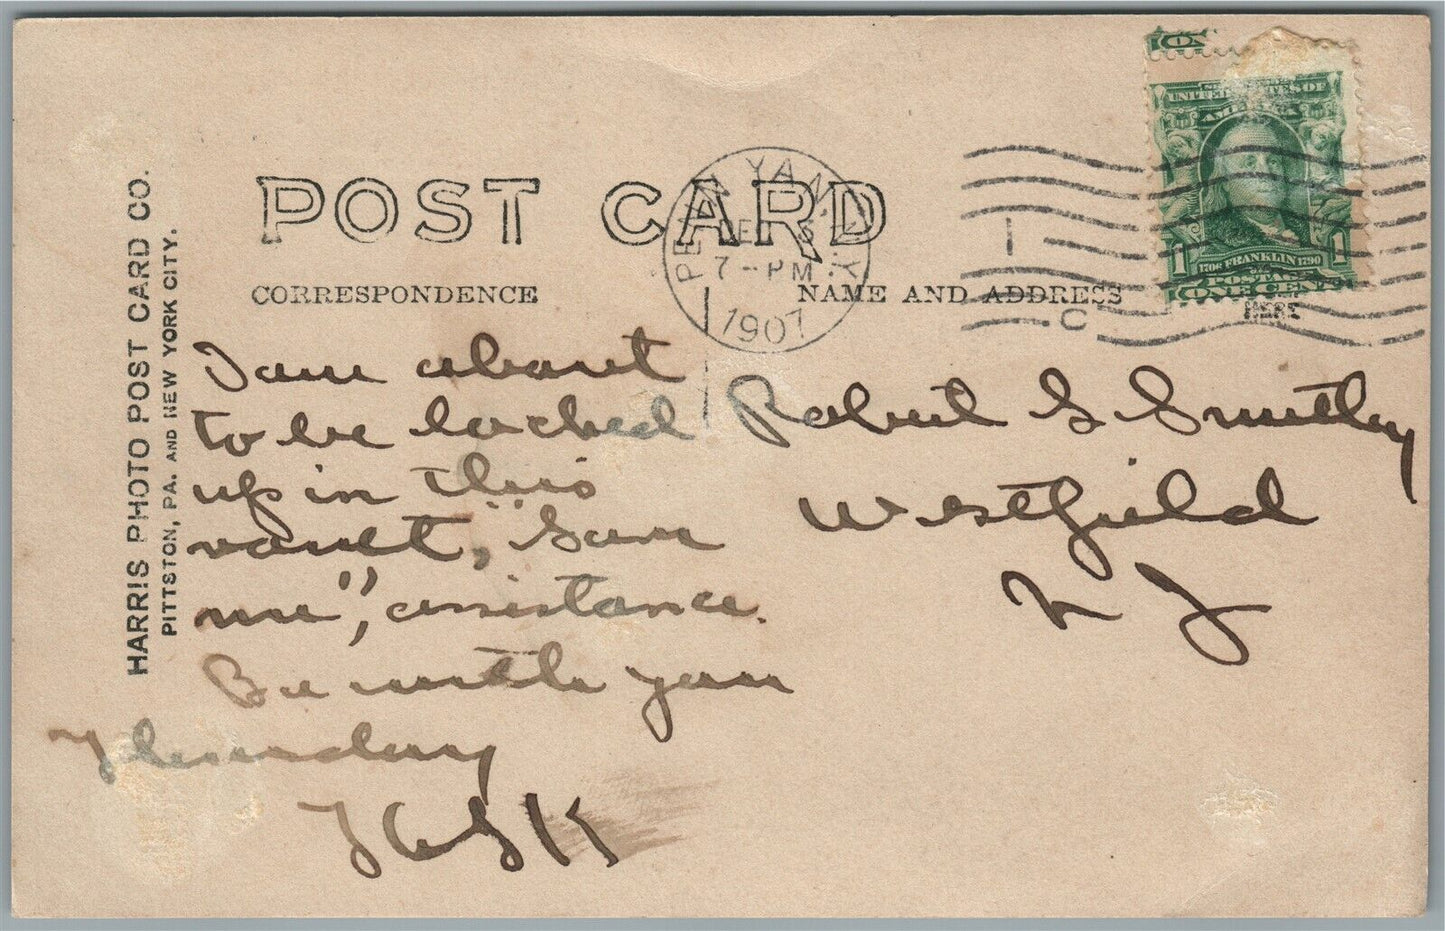 HARRIS PHOTO POST CARD CO.
PITTSTON, PA. AND NEW YORK CITY.
POST CARD
CORRESPONDENCE
NAME AND ADDRESS
PENN YAN N.Y.
7-PM
1907
1
C
UNITED STATES OF
AMERICA
1706 FRANKLIN 1790
POSTAGE
1 1
ONE CENT
HERE
I am about
to be locked
up in this
vault, "Sam
me", assistance.
Be with you
Thursday
Robert G Smitley
Westfield
N J